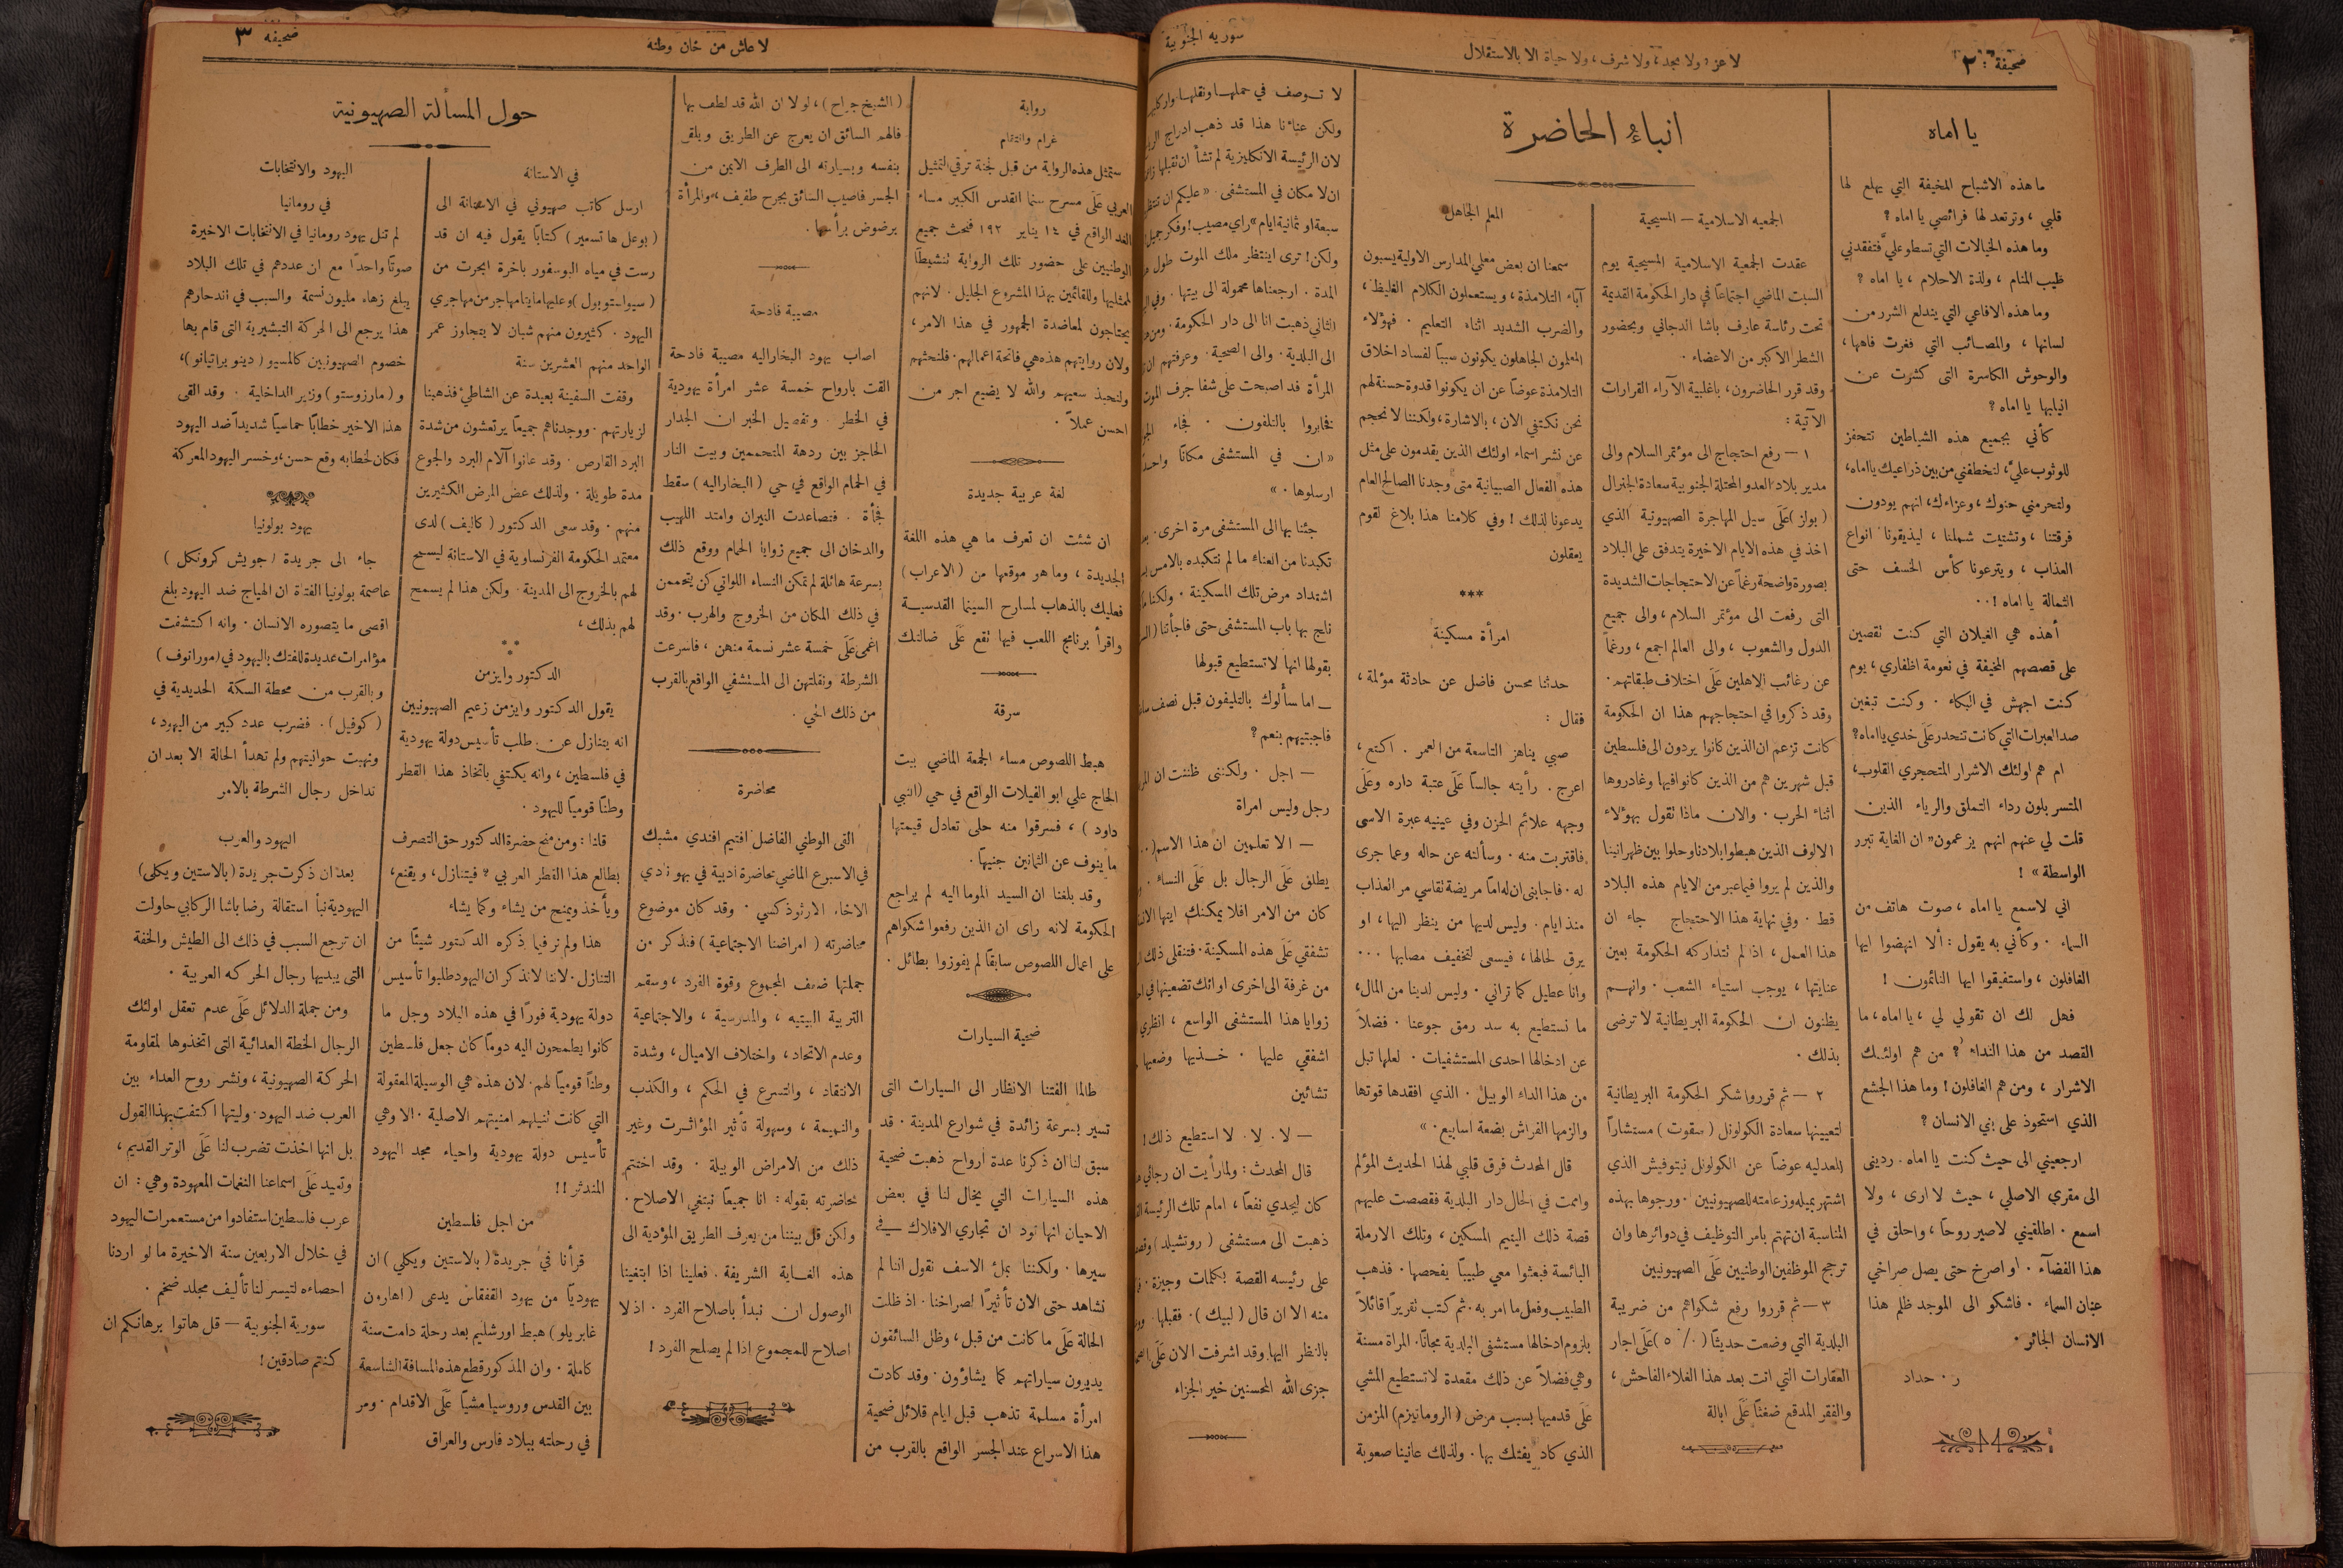 صحيفة ٢
لا عز ، ولا مجد ، ولا شرف ، ولا حياة الا بالاستقلال
سورية الجنوبية
يا اماه
ما هذه الاشباح المخيفة التي يهلع لها
قلبي ، وترتعد لها فرائصي يا اماه ؟
وما هذه الخيالات التي تسطو عليَّ فتفقدني
طيب المنام ، ولذة الاحلام ، يا اماه ؟
وما هذه الافاعي التي يندلع الشرر من
لسانها ، والمصائب التي فغرت فاهها ،
والوحوش الكاسرة التى كشرت عن
انيابها يا اماه ؟
كأني بجميع هذه الشياطين تتحفز
للوثوب عليَّ ، لتخطفني من بين ذراعيك يا اماه ،
ولتحرمني حنوك ، وعزاءك ، انهم يودون
فرقتنا ، وتشتيت شملنا ، ليذيقونا انواع
العذاب ، ويترعونا كأس الخسف حتى
الثمالة يا اماه ! . .
أهذه هي الغيلان التي كنت تقصين
على قصصهم المخيفة في نعومة اظفاري ، يوم
كنت اجهش في البكاء . وكنت تبغين
صد العبرات التي كانت تنحدر عَلَى خدي يا اماه ؟
ام هم اولئك الاشرار المتحجري القلوب ،
المتسربلون رداء التملق والرياء الذين
قلت لي عنهم انهم يزعمون " ان الغاية تبرر
الواسطة » !
اني لاسمع يا اماه ، صوت هاتف من
السماء . وكأني به يقول : ألا انهضوا ايها
الغافلون ، واستفيقوا ايها النائمون !
فهل لك ان تقولي لي ، يا اماه ، ما
القصد من هذا النداء ؟ من هم اولئك
الاشرار ، ومن هم الغافلون ! وما هذا الجشع
الذي استحوذ على بني الانسان ؟
ارجعيني الى حيث كنت يا اماه . رديني
الى مقري الاصلي ، حيث لا ارى ، ولا
اسمع . اطلقيني لاصير روحاً ، واحلق في
هذا الفضآء . او اصرخ حتى يصل صراخي
عنان السماء . فاشكو الى الموجد ظلم هذا
الانسان الجائر .
ر . حداد
انباءُ الحاضرة
الجمعيه الاسلامية — المسيحية
عقدت الجمعية الاسلامية المسيحية يوم
السبت الماضي اجتماعاً في دار الحكومة القديمة
تحت رئاسة عارف باشا الدجاني وبحضور
الشطر الاكبر من الاعضاء .
وقد قرر الحاضرون ، باغلبية الآراء القرارات
الآتية :
١ — رفع احتجاج الى مؤتمر السلام والى
مدير بلاد العدو المحتلة الجنوبية سعادة الجنرال
( بولز ) عَلَى سيل المهاجرة الصهيونية الذي
اخذ في هذه الايام الاخيرة يتدفق على البلاد
بصورة واضحة رغماً عن الاحتجاجات الشديدة
التى رفعت الى مؤتمر السلام ، والى جميع
الدول والشعوب ، والى العالم اجمع ، ورغماً
عن رغائب الاهلين عَلَى اختلاف طبقاتهم .
وقد ذكروا في احتجاجهم هذا ان الحكومة
كانت تزعم ان الذين كانوا يردون الى فلسطين
قبل شهرين هم من الذين كانوا فيها وغادروها
اثناء الحرب . والان ماذا تقول بهؤلاء
الالوف الذين هبطوا بلادنا وحلوا بين ظهرانينا
والذين لم يروا فيما عبر من الايام هذه البلاد
قط . وفي نهاية هذا الاحتجاج جاء ان
هذا العمل ، اذا لم تتداركه الحكومة بعين
عنايتها ، يوجب استياء الشعب . وانهم
يظنون ان الحكومة البريطانية لا ترضى
بذلك .
٢ — ثم قرروا شكر الحكومة البريطانية
لتعيينها سعادة الكولونل ( سقوت ) مستشاراً
للعدليه عوضاً عن الكولونل نيتوفيش الذي
اشتهر بميله وزعامته للصهيونيين . ورجوها بهذه
المناسبة ان تهتم بامر التوظيف في دوائرها وان
ترجح الموظفين الوطنيين عَلَى الصهيونيين
٣ — ثم قرروا رفع شكواهم من ضريبة
البلدية التي وضعت حديثاً ( ٥ ٪ ) عَلَى اجار
العقارات التي اتت بعد هذا الغلاء الفاحش ،
والفقر المدقع ضغثاً عَلَى ابالة
المعلم الجاهل
سمعنا ان بعض معلمي المدارس الاولية يسبون
آباء التلامذة ، ويستعملون الكلام الغليظ ،
والضرب الشديد اثناء التعليم . فهؤلاء
المعلمون الجاهلون يكونون سبباً لفساد اخلاق
التلامذة عوضاً عن ان يكونوا قدوة حسنة لهم
نحن نكتفي الان ، بالاشارة ، ولكننا لا نحجم
عن نشر اسماء اولئك الذين يقدمون على مثل
هذه الفعال الصبيانية متى وجدنا الصالح العام
يدعونا لذلك ! وفي كلامنا هذا بلاغ لقوم
يعقلون
***
امرأة مسكينة
حدثنا محسن فاضل عن حادثة مؤلمة ،
فقال :
صبي يناهز التاسعة من العمر . اكتع ،
اعرج . رأيته جالساً عَلَى عتبة داره وعَلَى
وجهه علائم الحزن وفي عينيه عبرة الاسى
فاقتربت منه . وسألته عن حاله وعما جرى
له . فاجابنى ان له اماً مريضة تقاسي مر العذاب
منذ ايام . وليس لديها من ينظر اليها ، او
يرق لحالها ، فيسعى لتخفيف مصابها . . .
وانا عطيل كما تراني . وليس لدينا من المال ،
ما نستطيع به سد رمق جوعنا . فضلاً
عن ادخالها احدى المستشفيات . لعلها تبل
من هذا الداء الوبيل . الذي افقدها قوتها
والزمها الفراش بضعة اسابيع . »
قال المحدث فرق قلبي لهذا الحديث المؤلم
واممت في الحال دار البلدية فقصصت عليهم
قصة ذلك اليتيم المسكين ، وتلك الارملة
البائسة فبعثوا معي طبيباً يفحصها . فذهب
الطبيب وفعل ما امر به . ثم كتب تقريراً قائلاً
بلزوم ادخالها مستشفى البلدية مجاناً . المراة مسنة
وهي فضلاً عن ذلك مقعدة لا تستطيع المشي
عَلَى قدميها بسبب مرض ( الرومانيزم ) المزمن
الذي كاد يفتك بها . ولذلك عانينا صعوبة
لا توصف في حملها ونقلها
ولكن عناءنا هذا قد ذهب ادراج
لان الرئيسة الانكليزية لم تشأ ان تقبلها
ان لا مكان في المستشفى . « عليكم ان
سبعة او ثمانية ايام » راي مصيب ! وفكر جميل !
ولكن ! ترى اينتظر ملك الموت طول
المدة . ارجعناها محمولة الى بيتها .
الثاني ذهبت انا الى دار الحكومة .
الى البلدية . والى الصحية . وعرفتهم
المرأة قد اصبحت على شفا جرف الموت
فخابروا بالتلفون . فجاء
« ان في المستشفى مكاناً
ارسلوها . »
جئنا بها الى المستشفى مرة اخرى .
تكبدنا من العناء ما لم نتكبده بالامس
اشتداد مرض تلك المسكينة . ولكننا
نلج بها باب المستشفى حتى فاجأتنا
بقولها انها لا تستطيع قبولها
— اما سألوك بالتليفون قبل نصف
فاجبتيهم بنعم ؟
— اجل . ولكننى ظننت ان
رجل وليس امراة
— الا تعلمين ان هذا الاسم
يطلق عَلَى الرجال بل عَلَى النساء .
كان من الامر افلا يمكنك ايتها
تشفقي عَلَى هذه المسكينة . فتنقلى ذلك
من غرفة الى اخرى او انك تضعينها في
زوايا هذا المستشفى الواسع ، انظري
اشفقي عليها . خذيها وضعيها
تشائين
— لا . لا . لا استطيع ذلك !
قال المحدث : ولما رأيت ان رجائي
كان ليجدي نفعاً ، امام تلك الرئيسة
ذهبت الى مستشفى ( روتشيلد )
على رئيسه القصة بكلمات وجيزة .
منه الا ان قال ( لبيك ) . فقبلها .
بالنظر اليها وقد اشرفت الان عَلَى
جزى الله المحسنين خير الجزاء
لا عاش من خان وطنه
صحيفه ٣
رواية
غرام وانتقام
ستمثل هذه الرواية من قبل لجنة ترقي التمثيل
العربي عَلَى مسرح سنما القدس الكبير مساء
الغد الراقع في ١٤ يناير ١٩٢ فنحث جميع
الوطنيين على حضور تلك الرواية تنشيطاً
لممثليها وللقائمين بهذا المشروع الجليل . لانهم
يحتاجون لمعاضدة الجمهور في هذا الامر ،
ولان روايتهم هذه هي فاتحة اعمالهم . فلنحثهم
ولنحبذ سعيهم والله لا يضيع اجر من
احسن عملاً .
لغة عربية جديدة
ان شئت ان تعرف ما هي هذه اللغة
الجديدة ، وما هو موقعها من ( الاعراب )
فعليك بالذهاب لمسارح السينما القدسية
واقرأ برنامج اللعب فيها تقع عَلَى ضالتك
سرقة
هبط اللصوص مساء الجمعة الماضي بيت
الحاج علي ابو الفيلات الواقع في حي ( النبي
داود ) ، فسرقوا منه حلى تعادل قيمتها
ما ينوف عن الثمانين جنيهاً .
وقد بلغنا ان السيد الموما اليه لم يراجع
الحكومة لانه راى ان الذين رفعوا شكواهم
على اعمال اللصوص سابقاً لم يفوزوا بطائل .
ضحية السيارات
طالما الفتنا الانظار الى السيارات التى
تسير بسرعة زائدة في شوارع المدينة . قد
سبق لنا ان ذكرنا عدة ارواح ذهبت ضحية
هذه السيارات التي يخال لنا في بعض
الاحيان انها تود ان تجاري الافلاك في
سيرها . ولكننا بملء الاسف نقول اننا لم
نشاهد حتى الان تأثيراً لصراخنا . اذ ظلت
الحالة عَلَى ما كانت من قبل ، وظل السائقون
يديرون سياراتهم كما يشاؤون . وقد كادت
امرأة مسلمة تذهب قبل ايام قلائل ضحية
هذا الاسراع عند الجسر الواقع بالقرب من
( الشيخ جراح ) ، لولا ان الله قد لطف بها
فالهم السائق ان يعرج عن الطريق ويلقى
بنفسه وبسيارته الى الطرف الايمن من
الجسر فاصيب السائق بجرح طفيف ، والمرأة
برضوض برأسها .
مصيبة فادحة
اصاب يهود البخاراليه مصيبة فادحة
القت بارواح خمسة عشر امرأة يهودية
في الخطر . وتفصيل الخبر ان الجدار
الحاجز بين ردهة المتحممين وبيت النار
في الحمام الواقع في حي ( البخاراليه ) سقط
فجأة . فتصاعدت النيران وامتد اللهيب
والدخان الى جميع زوايا الحمام ووقع ذلك
بسرعة هائلة لم تمكن النساء اللواتي كن يتحممن
في ذلك المكان من الخروج والهرب . وقد
اغمى عَلَى خمسة عشر نسمة منهن ، فاسرعت
الشرطة ونقلتهن الى المستشفي الواقع بالقرب
من ذلك الحي .
محاضرة
القى الوطني الفاضل افتيم افندي مشبك
في الاسبوع الماضي محاضرة ادبية في بهو نادي
الاخاء الارثوذكسي . وقد كان موضوع
محاضرته ( امراضنا الاجتماعية ) فنذكر من
جملتها ضعف المجموع وقوة الفرد ، وسقم
التربية البيتيه ، والمدرسية ، والاجتماعية
وعدم الاتحاد ، واختلاف الاميال ، وشدة
الانتقاد ، والتسرع في الحكم ، والكذب
والنميمة ، وسهولة تأثير المؤاثرت وغير
ذلك من الامراض الوبيلة . وقد اختتم
محاضرته بقوله : انا جميعاً نبتغي الاصلاح .
ولكن قل بيننا من يعرف الطريق المؤدية الى
هذه الغاية الشريفة . فعلينا اذا ابتغينا
الوصول ان نبدأ باصلاح الفرد . اذ لا
اصلاح للمجموع اذا لم يصلح الفرد !
حول المسألة الصهيونية
في الاستانة
ارسل كاتب صهيوني في الاستانة الى
( بوعل ها تسعير ) كتاباً يقول فيه ان قد
رست في مياه البوسفور باخرة ابحرت من
( سيواستوبول ) وعليها ماينا مهاجر من مهاجري
اليهود . كثيرون منهم شبان لا يتجاوز عمر
الواحد منهم العشرين سنة
وقفت السفينة بعيدة عن الشاطئ فذهبنا
لزيارتهم . ووجدناهم جميعاً يرتعشون من شدة
البرد القارص . وقد عانوا آلام البرد والجوع
مدة طويلة . ولذلك عض المرض الكثيرين
منهم . وقد سعى الدكتور ( كاليف ) لدى
معتمد الحكومة الفرنساوية في الاستانة ليسمح
لهم بالخروج الى المدينة . ولكن هذا لم يسمح
لهم بذلك ،
***
الدكتور وايزمن
يقول الدكتور وايزمن زعيم الصهيونيين
انه يتنازل عن طلب تأسيس دولة يهودية
في فلسطين ، وانه يكتفي باتخاذ هذا القطر
وطناً قومياً لليهود .
قلنا : ومن منح حضرة الدكتور حق التصرف
بطالع هذا القطر العربي ؟ فيتنازل ، ويقنع ،
ويأخذ ويمنح من يشاء وكما يشاء
هذا ولم نر فيما ذكره الدكتور شيئاً من
التنازل . لاننا لا نذكر ان اليهود طلبوا تأسيس
دولة يهودية فوراً في هذه البلاد وجل ما
كانوا يطمحون اليه دوماً كان جعل فلسطين
وطناً قومياً لهم . لان هذه هي الوسيلة المعقولة
التي كانت تنيلهم امنيتهم الاصلية . الا وهي
تأسيس دولة يهودية واحياء مجد اليهود
المندثر ! !
من اجل فلسطين
قرأنا في جريدة ( بالاستين ويكلي ) ان
يهودياً من يهود القفقاس يدعى ( اهارون
غابريلو ) هبط اورشليم بعد رحلة دامت سنة
كاملة . وان المذكور قطع هذه المسافة الشاسعة
بين القدس وروسيا مشياً عَلَى الاقدام . ومر
في رحلته ببلاد فارس والعراق
اليهود والانتخابات
في رومانيا
لم تنل يهود رومانيا في الانتخابات الاخيرة
صوتاً واحداً مع ان عددهم في تلك البلاد
يبلغ زهاء مليون نسمة والسبب في اندحارهم
هذا يرجع الى الحركة التبشيرية التى قام بها
خصوم الصهيونيين كالمسيو ( دينو براتيانو ) ،
و ( مارزوستو ) وزير الداخلية . وقد القى
هذا الاخير خطاباً حماسياً شديداً ضد اليهود
فكان لخطابه وقع حسن ، وخسر اليهود المعركة
يهود بولونيا
جاء الى جريدة ( جويش كرونكل )
عاصمة بولونيا الفتاة ان الهياج ضد اليهود بلغ
اقصى ما يتصوره الانسان . وانه اكتشفت
مؤامرات عديدة للفتك باليهود في ( مورانوف )
وبالقرب من محطة السكة الحديدية في
( كوفيل ) . فضرب عدد كبير من اليهود ،
ونهبت حوانيتهم ولم تهدأ الحالة الا بعد ان
تداخل رجال الشرطة بالامر
اليهود والعرب
بعد ان ذكرت جريدة ( بالاستين ويكلى )
اليهودية نبأ استقالة رضا باشا الركابي حاولت
ان ترجع السبب في ذلك الى الطيش والخفة
التى يبديها رجال الحركه العربية .
ومن جملة الدلائل عَلَى عدم تعقل اولئك
الرجال الخطة العدائية التى اتخذوها لمقاومة
الحركة الصهيونية ، ونشر روح العداء بين
العرب ضد اليهود . وليتها اكتفت بهذا القول
بل انها اخذت تضرب لنا عَلَى الوتر القديم ،
وتعيد عَلَى اسماعنا النغمات المعهودة وهي : ان
عرب فلسطين استفادوا من مستعمرات اليهود
في خلال الاربعين سنة الاخيرة ما لو اردنا
احصاءه لتيسر لنا تأليف مجلد ضخم .
سورية الجنوبية — قل هاتوا برهانكم ان
كنتم صادقين !